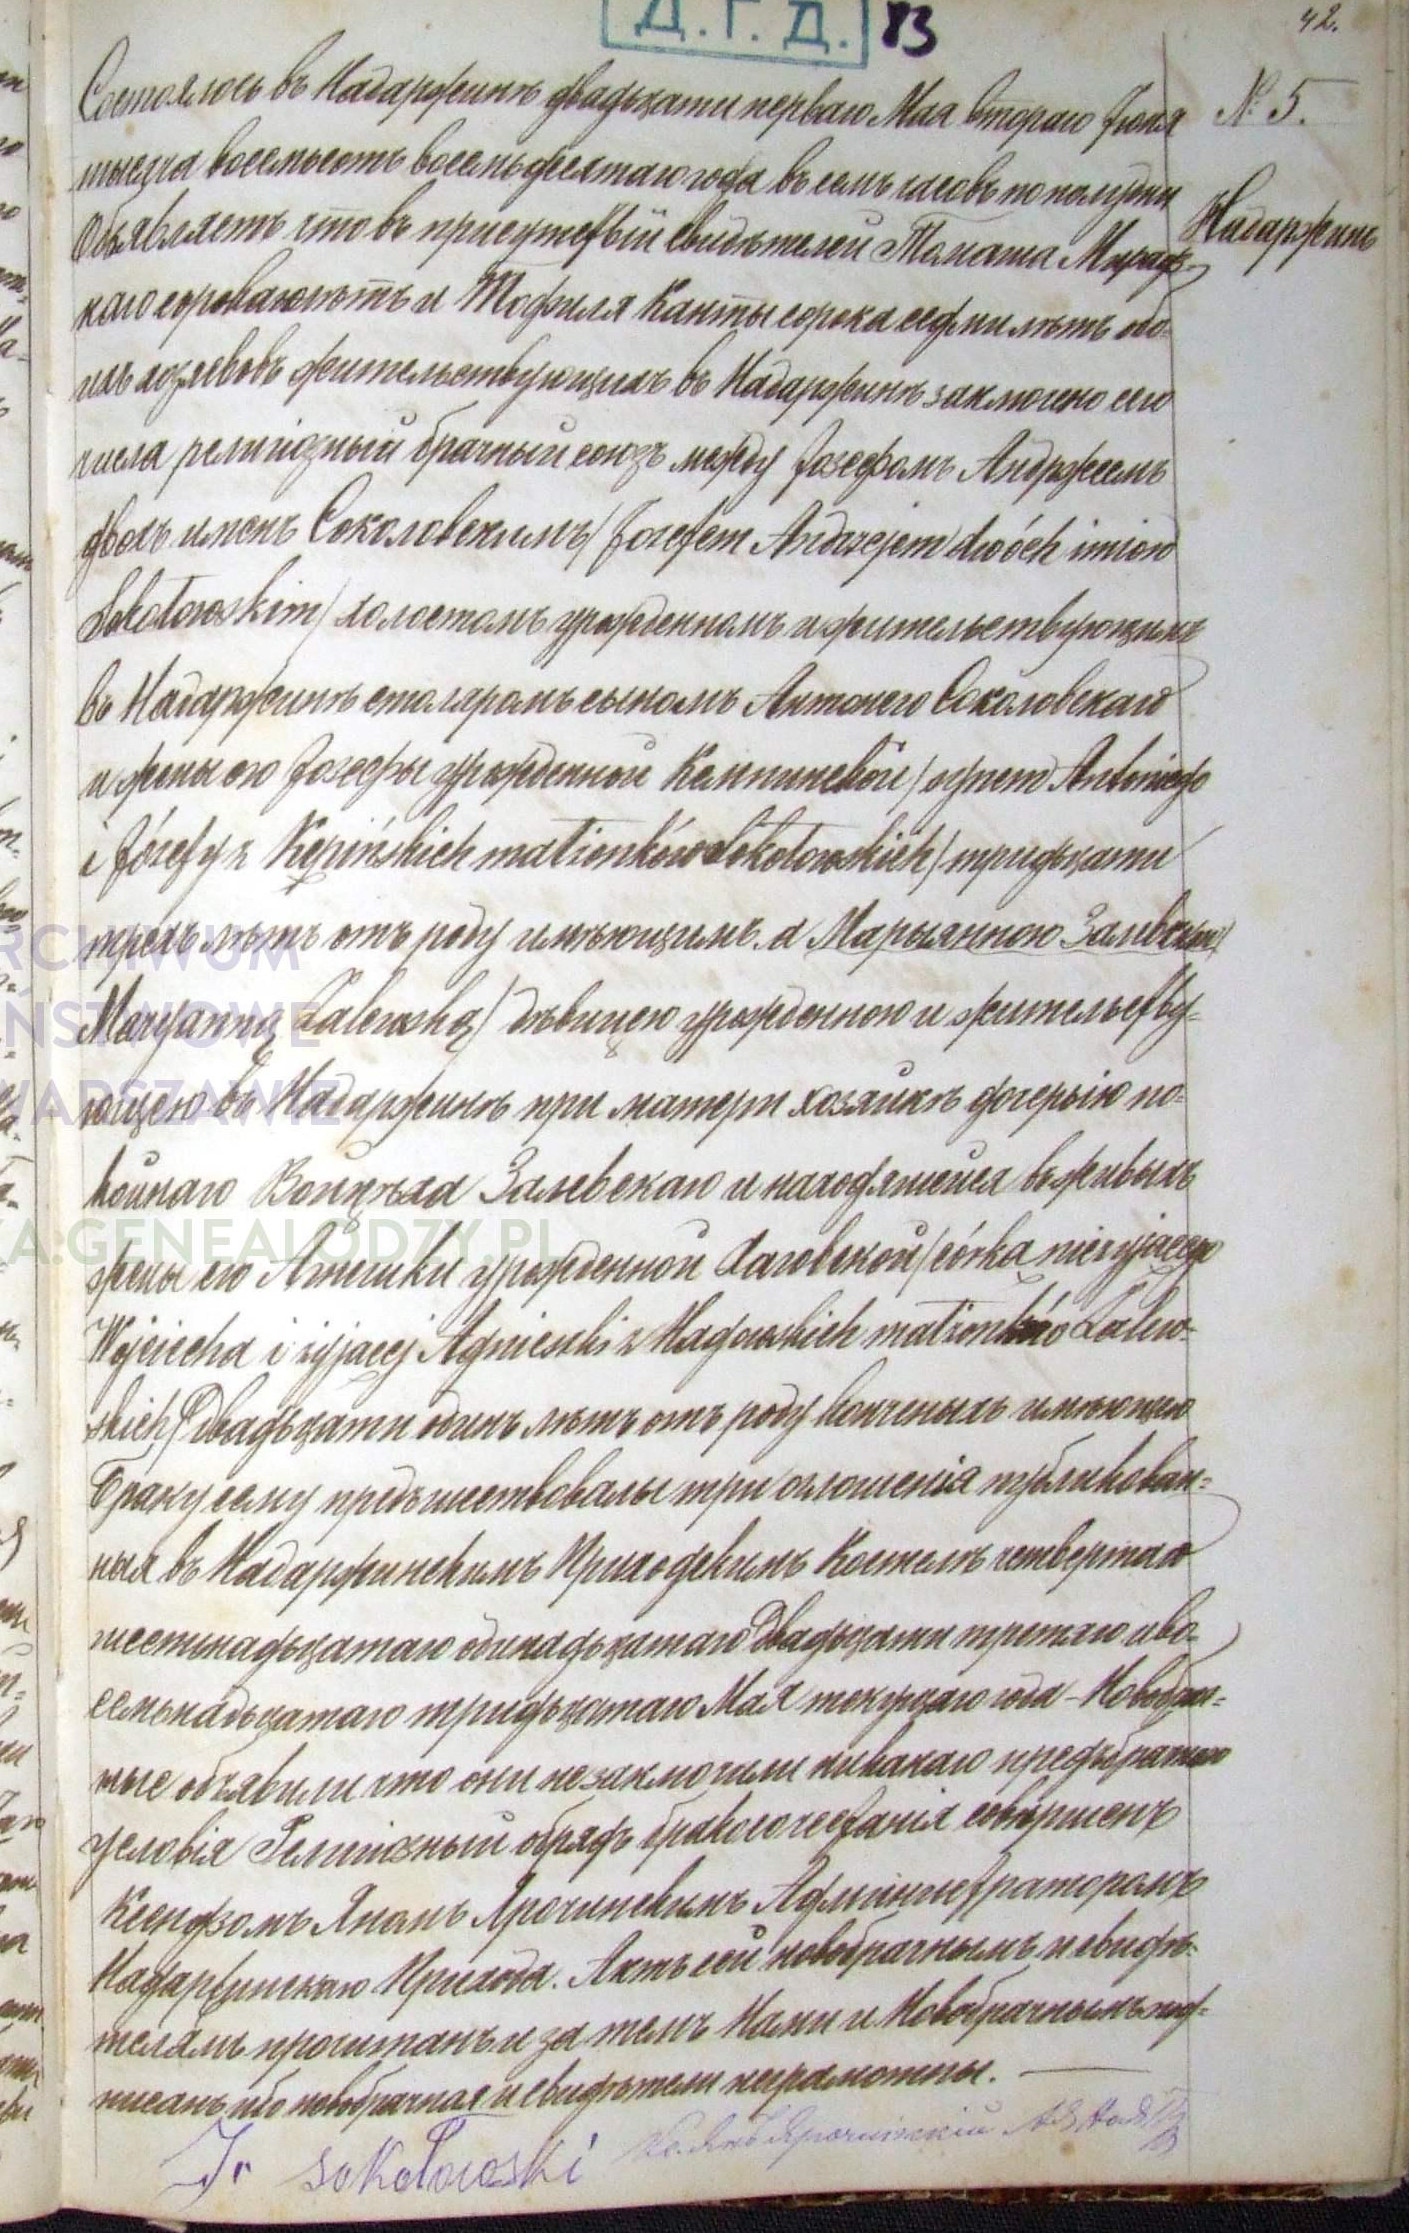 Д.Г.Д. 83
42.
№ 5.
Надаржинъ
Состоялось въ Надаржинѣ двадцати перваго Мая втораго Іюня
тысяча восемьсотъ восемьдесятаго года въ семь часовъ по полудни
Объявляемъ что въ присутствіи свидѣтелей Томаша
каго лѣтъ и Теофиля Канты сорока седми лѣтъ обо-
ихъ хозяевовъ жительствующихъ въ Надаржинѣ заключено сего
числа религіозный брачный союзъ между Іозефомъ Андржеемъ
двохъ именъ Соколовскимъ /Jozefem Andrzejem dwóch imion
Sokołowskim/ холостомъ урожденномъ и жительствующимъ
въ Надаржинѣ столяромъ сыномъ Антонего Соколовскаго
и жены его Іозефы урожденной /synem Antoniego
i Józefy z Kępińskich małżonków Sokołowskich/ тридцати
трехъ лѣтъ отъ роду имѣющимъ. а Марыянною Залевскою/
Maryanną Zalewską/ дѣвицею урожденною и жительству-
ющею въ Надаржинѣ при матери хозяйкѣ дочерью по-
койнаго Войцѣха Залевскаго и находящейся въ живыхъ
жены его Агнешки урожденной /córką nieżyjącego
Wojciecha i żyjącej Agnieszki z małżonków Zalew-
skich/ Двадцати одинъ лѣтъ отъ роду конченыхъ имѣющею
Браку сему предшествовалы три оглошенія публикован-
ныя въ Надаржинскимъ Приходскимъ Костелѣ четвертаго
шестнадцатаго одинадцатаго Двадцати третяго и во-
семьнадцатаго тридцатаго Мая текущаго года - Новобрач-
ные объявили что они незаключили никакаго предъбрачнаго
условія Религіозный обрядъ бракосочетанія совершенъ
Ксендзомъ Яномъ Ярочинскимъ Администраторомъ
Надаржинскаго Прихода. Актъ сей новобрачнымъ и свидѣ-
телямъ прочитанъ и за темъ Нами и Новобрачнымъ под-
писанъ ибо новобрачная и свидѣтели неграмотны.
J. Sokołowski
Кс. Янъ Ярочинскій
ARCHIWUM
PAŃSTWOWE
WARSZAWIE
A:GENEALODZY.PL